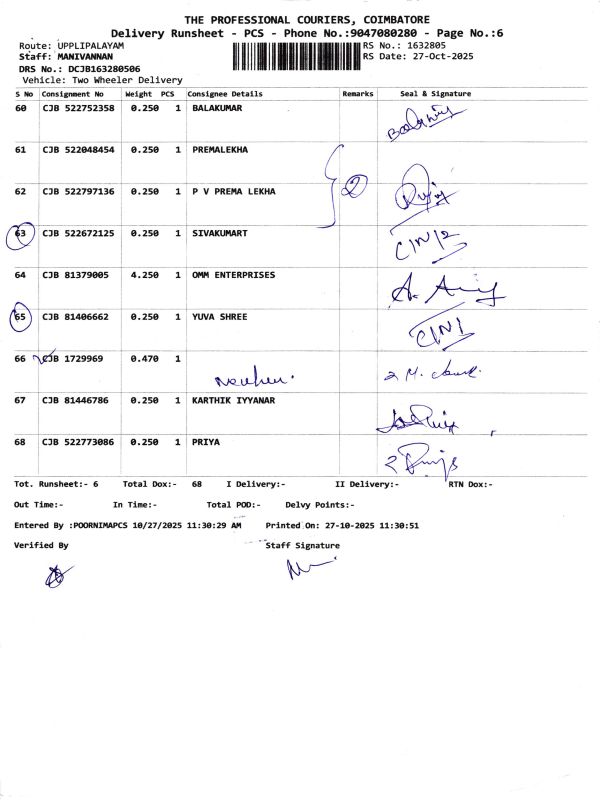 THE PROFESSIONAL COURIERS, COIMBATORE
Delivery Runsheet - PCS - Phone No.:9047080280 - Page No.:6
Route: UPPLIPALAYAM RS No.: 1632805
Staff: MANIVANNAN RS Date: 27-Oct-2025
DRS No.: DCJB163280506
Vehicle: Two Wheeler Delivery
S No Consignment No Weight PCS Consignee Details Remarks Seal & Signature
60 CJB 522752358 0.250 1 BALAKUMAR
61 CJB 522048454 0.250 1 PREMALEKHA
62 CJB 522797136 0.250 1 P V PREMA LEKHA 2
63 CJB 522672125 0.250 1 SIVAKUMART
64 CJB 81379005 4.250 1 OMM ENTERPRISES
65 CJB 81406662 0.250 1 YUVA SHREE
66 CJB 1729969 0.470 1
67 CJB 81446786 0.250 1 KARTHIK IYYANAR
68 CJB 522773086 0.250 1 PRIYA
Tot. Runsheet:- 6 Total Dox:- 68 I Delivery:- II Delivery:- RTN Dox:-
Out Time:- In Time:- Total POD:- Delvy Points:-
Entered By :POORNIMAPCS 10/27/2025 11:30:29 AM Printed On: 27-10-2025 11:30:51
Verified By Staff Signature